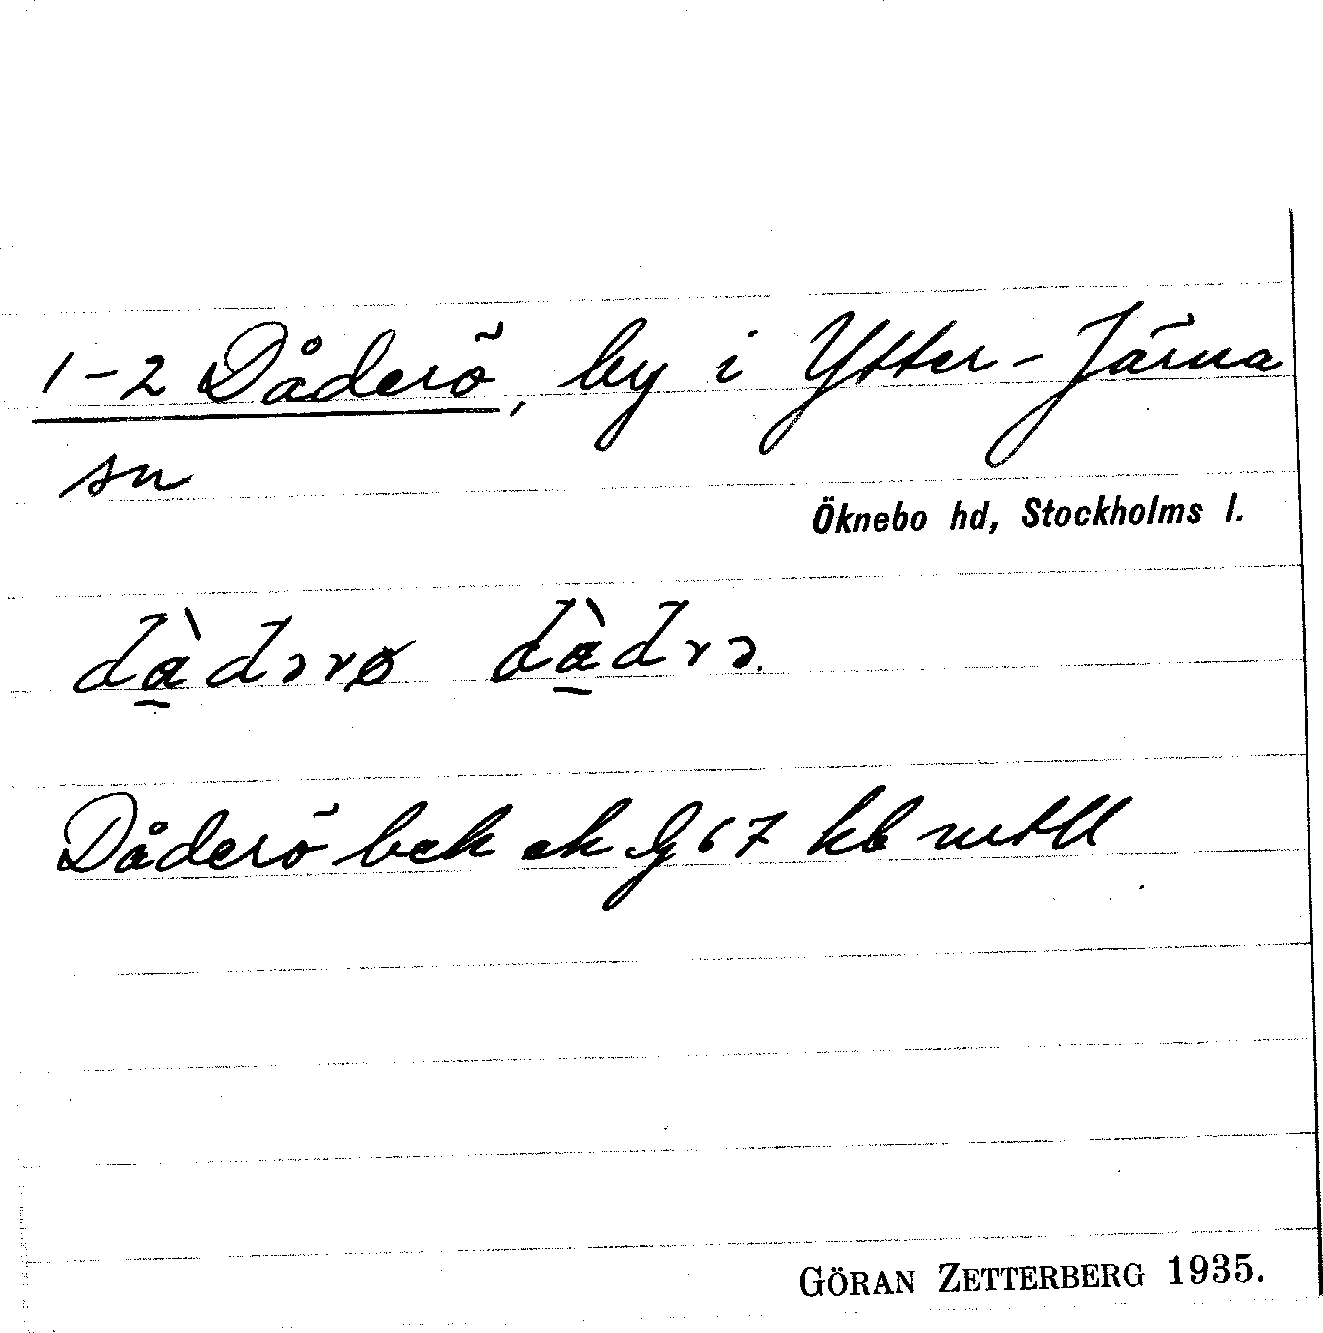 1-2 Dåderö, by i Ytter-Järna
sn
Öknebo hd, Stockholms l.
dàdərø dàdrə.
Dåderö bek ek G 67 kb mtll
GÖRAN ZETTERBERG 1935.